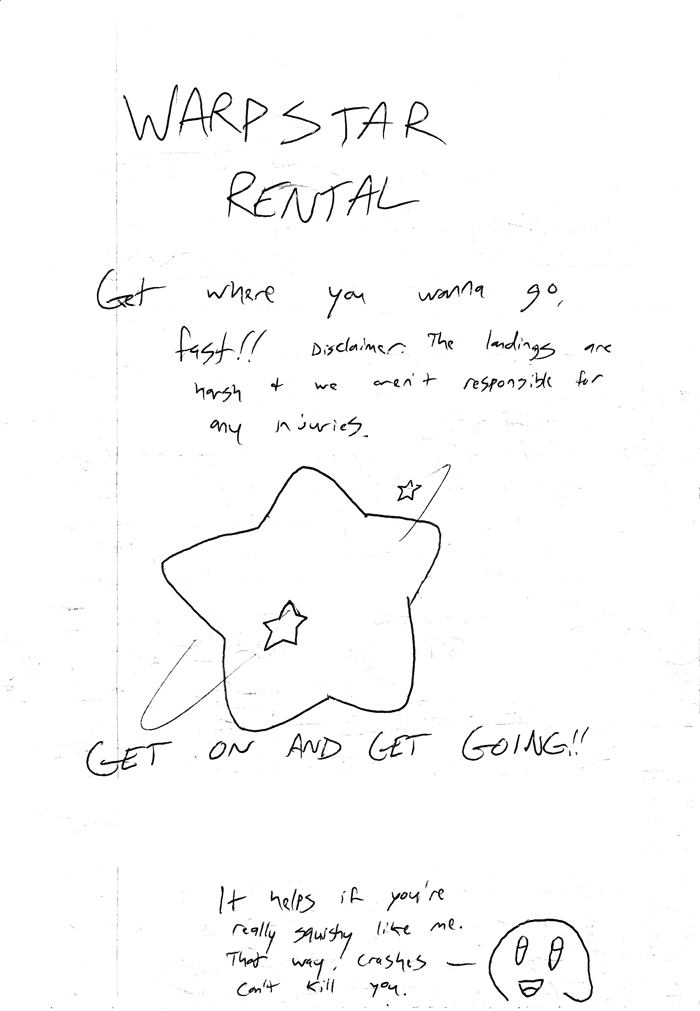 WARPSTAR
RENTAL
Get where you wanna go,
fast!! Disclaimer: The landings are
harsh & we aren't responsible for
any injuries.
GET ON AND GET GOING!!
It helps if you're
really squishy like me.
That way, crashes
can't kill you.